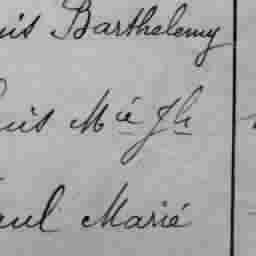 uis Barthelemy
uis Mie Jh
aul Marié